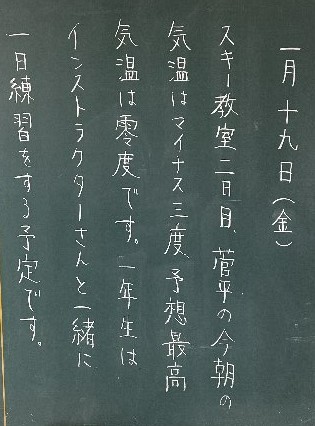 一月十九日(金)
スキー教室二日目、菅平の今朝の
気温はマイナス三度予想最高
気温は零度です。一年生は
インストラクターさんと一緒に
一日練習をする予定です。